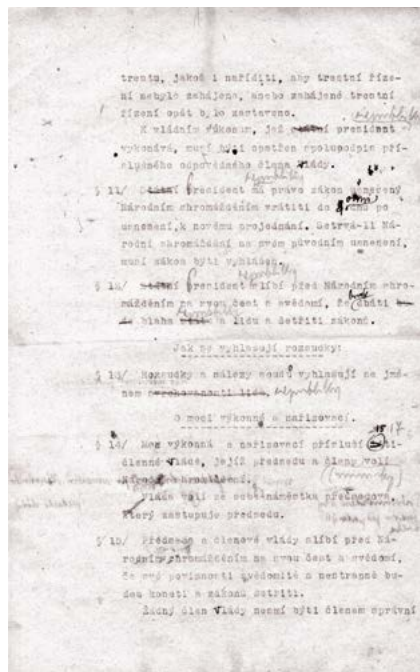 trestu, jakož i naříditi, aby trestní říze-
ní nebylo zahájeno, anebo zahájené trestní
řízení opět bylo zastaveno.
republiky
K vládním výkonům, jež státní president
vykonává, musí býti opatřen spolupodpis pří-
slušného odpovědného člena vlády.
republiky
§ 11/ Státní president má právo zákon usnesený
Národním shromážděním vrátiti do po
usnesení, k novému projednání. Setrvá-li Ná-
rodní shromáždění na svém původním usnesení,
musí zákon býti vyhlášen.
republiky
§ 12/ Státní president slíbí před Národním shro-
mážděním na svou čest a svědomí, že dbáti
blaha a lidu a šetřiti zákonů.
republiky
Jak se vyhlašují rozsudky:
§ 13/ Rozsudky a nálezy soudů vyhlašují se jmé-
nem svrchovanosti lidu. republiky
O moci výkonné a nařizovací.
17
§ 14/ Moc výkonná a nařizovací přísluší
členné vládě, jejíž předsedu a členy volí
Národní shromáždění.
Vláda volí ze sebe náměstka předsedova,
který zastupuje předsedu.
§ 15/ Předseda a členové vlády slíbí před Ná-
rodním shromážděním na svou čest a svědomí,
že své povinnosti svědomitě a nestranně bu-
dou konati a zákonů šetřiti.
Žádný člen vlády nesmí býti členem správní